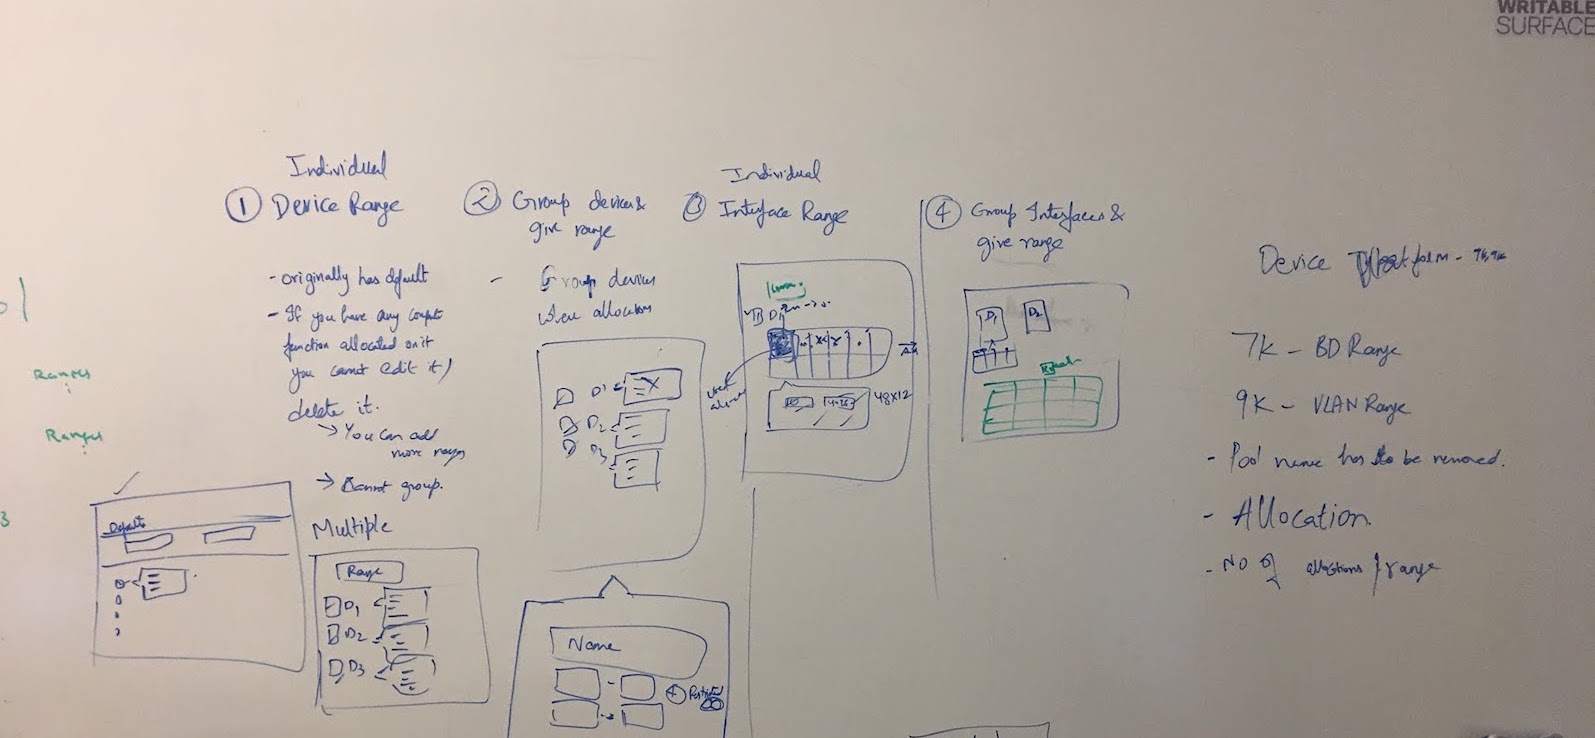 WRITABLE
SURFACE
Individual
① Device Range
- originally has default
- If you have any
function allocated on it
you cannot edit it/
delete it.
→ You can add
more ranges
→ Cannot group.
Multiple
Range
D1
D2
D3
Default
Ranges
Ranges
3
② Group devices &
give range
- Group devices
when allocations
D1
D2
D3
Name
+ Restricted
Individual
③ Interface Range
D1
48X12
④ Group Interfaces &
give range
D1
D2
Device Platform - 7K, 9K
7K - BD Range
9K - VLAN Range
- Pool name has to be removed.
- Allocation
- NO of allocations / range